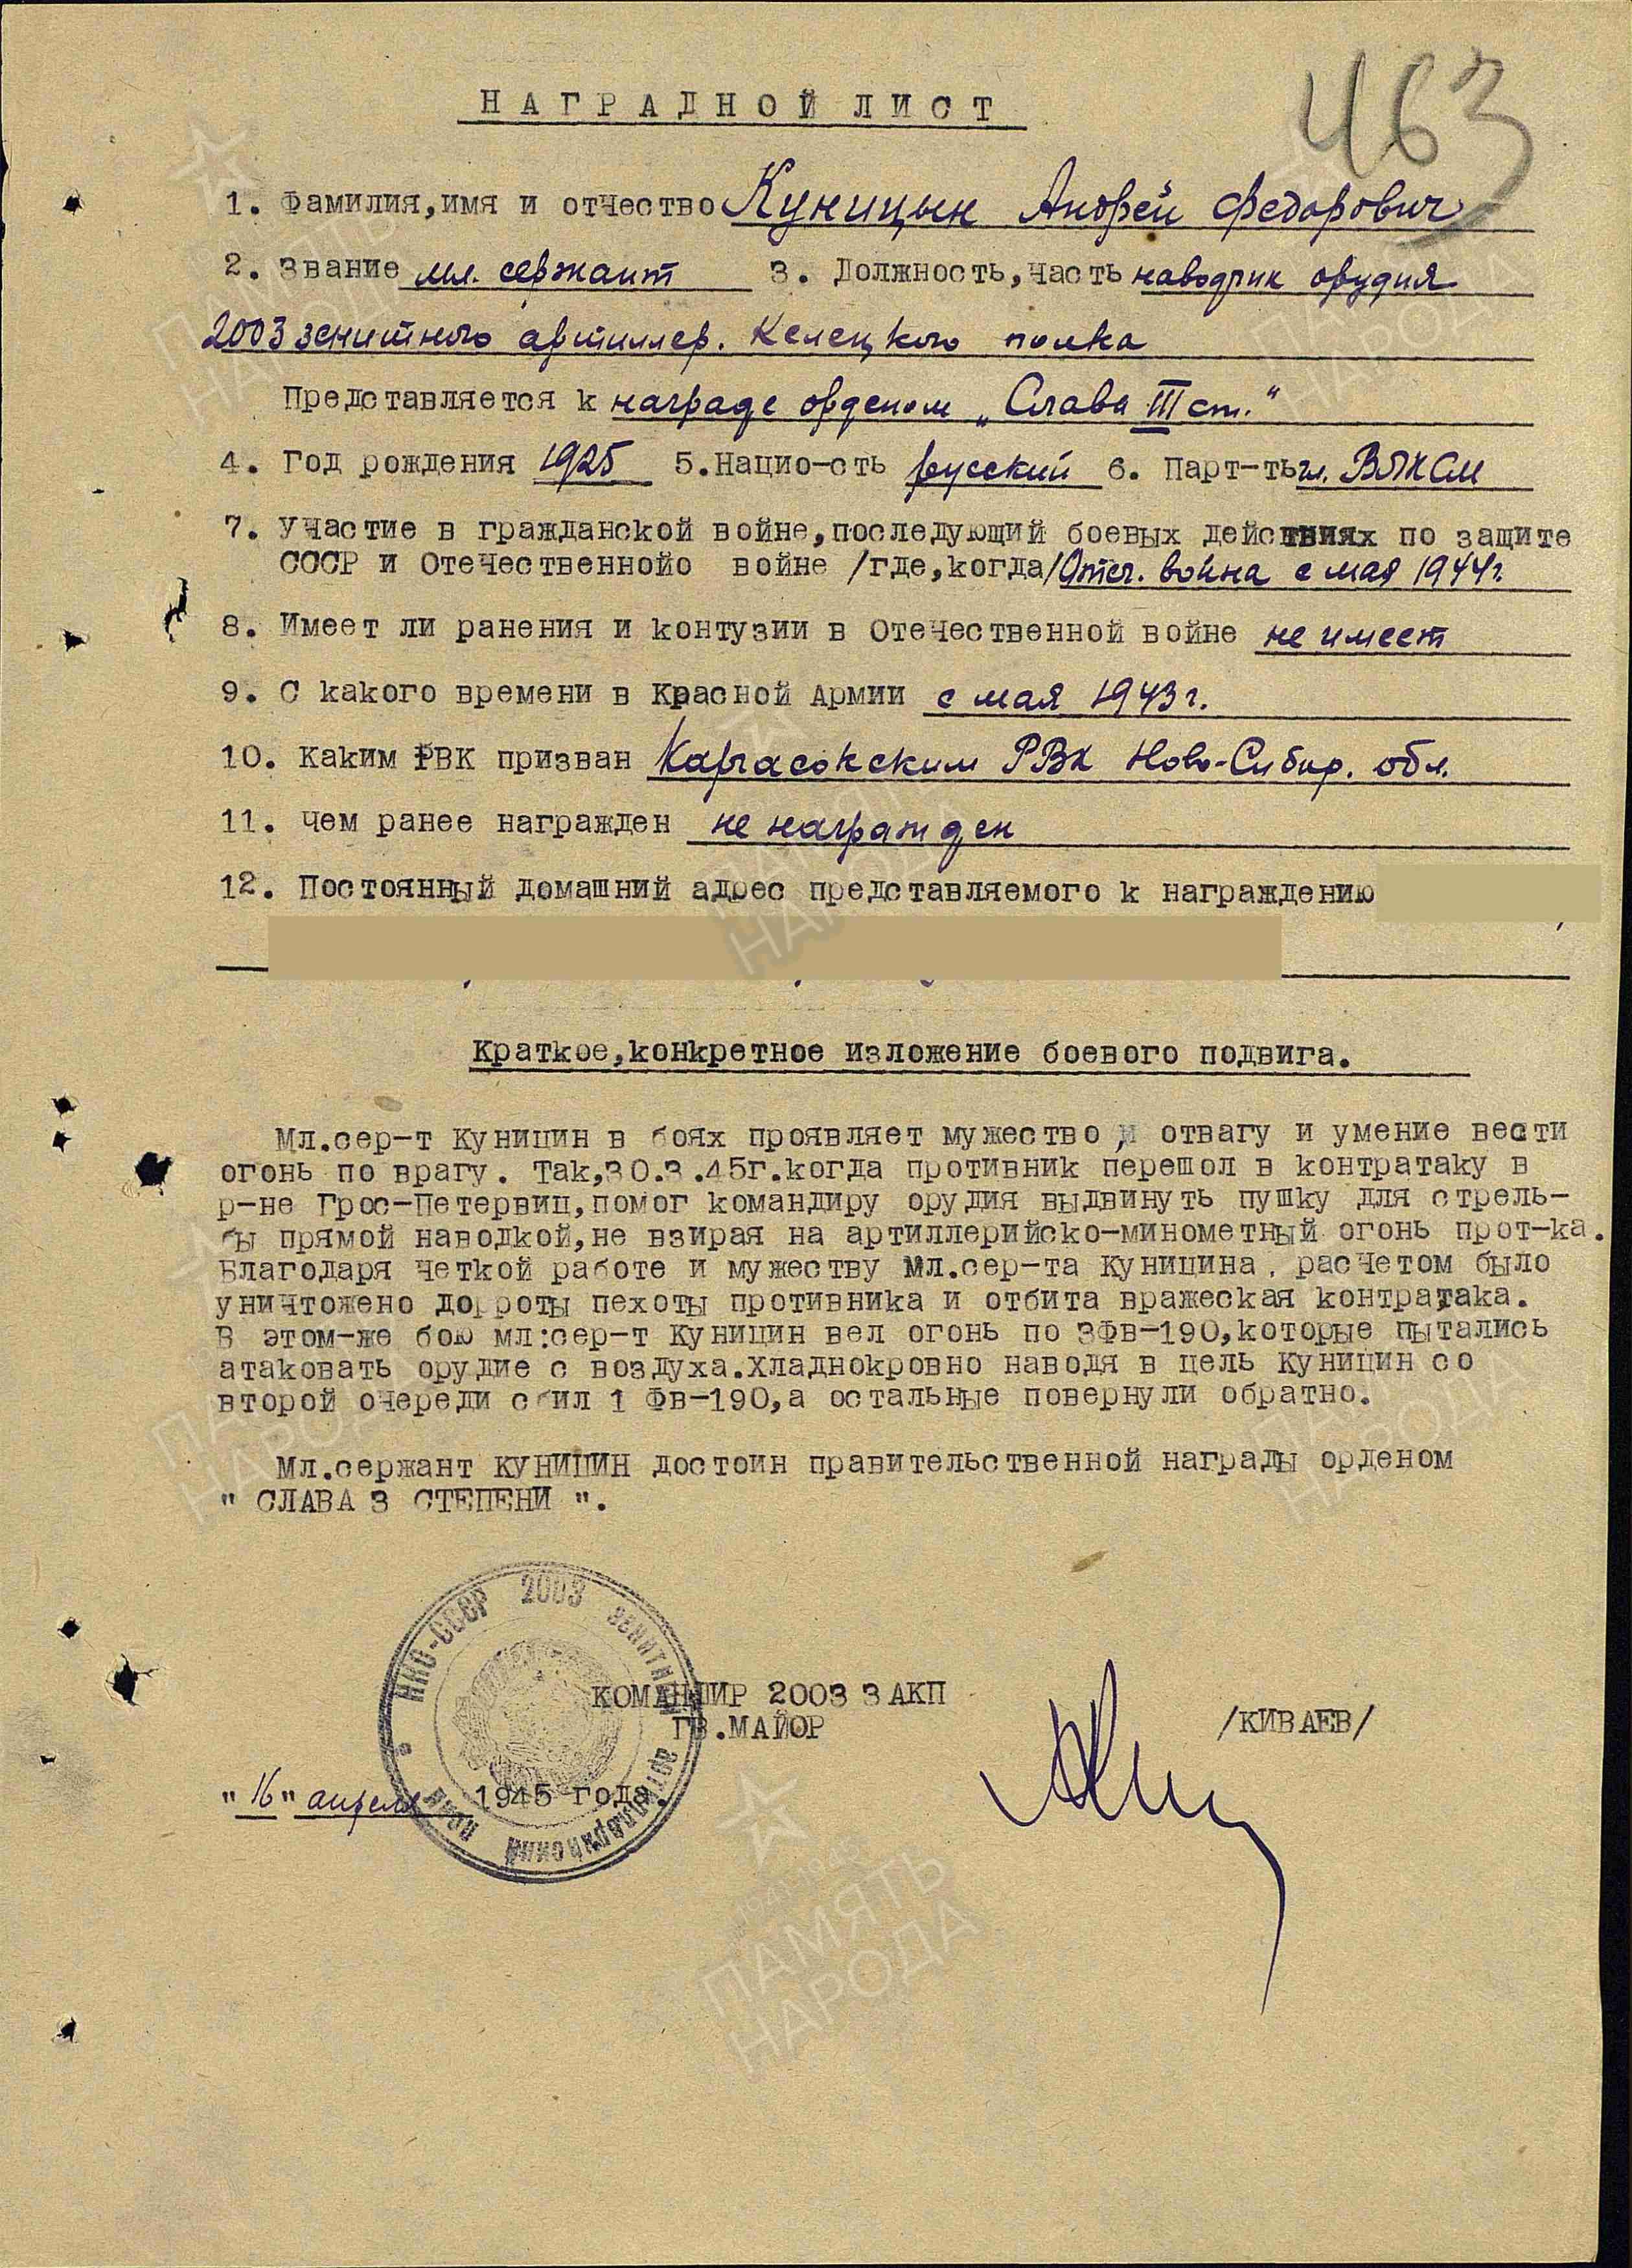 463
НАГРАДНОЙ ЛИСТ
1. Фамилия,имя и отчество Куницын Андрей Федорович
2. Звание мл. сержант 3. Должность,часть наводчик орудия
2003 зенитного артиллер. Келецкого полка
Представляется к награде орденом „Слава III ст."
4. Год рождения 1925 5.Нацио-сть русский 6. Парт-ть чл. ВЛКСМ
7. Участие в гражданской войне,последующий боевых действиях по защите
СССР и Отечественнойо войне /где,когда/ Отеч. война с мая 1944г.
8. Имеет ли ранения и контузии в Отечественной войне не имеет
9. С какого времени в Красной Армии с мая 1943г.
10. Каким РВК призван Каргасокским РВК Ново-Сибир. обл.
11. Чем ранее награжден не награжден
12. Постоянный домашний адрес представляемого к награждению
Краткое,конкретное изложение боевого подвига.
Мл.сер-т Куницин в боях проявляет мужество и отвагу и умение вести
огонь по врагу. Так,30.3.45г.когда противник перешол в контратаку в
р-не Грос-Петервиц,помог командиру орудия выдвинуть пушку для стрель-
бы прямой наводкой,не взирая на артиллерийско-минометный огонь прот-ка.
Благодаря четкой работе и мужеству мл.сер-та Куницина, расчетом было
уничтожено до роты пехоты противника и отбита вражеская контратака.
В этом-же бою мл:сер-т Куницин вел огонь по 3Фв-190,которые пытались
атаковать орудие с воздуха.Хладнокровно наводя в цель Куницин со
второй очереди сбил 1 Фв-190,а остальные повернули обратно.
Мл.сержант КУНИЦИН достоин правительственной награды орденом
" СЛАВА 3 СТЕПЕНИ ".
НКО-СССР 2003 зенитный артиллерийский полк
КОМАНДИР 2003 ЗАКП
ГВ.МАЙОР /КИВАЕВ/
"16" апреля 1945 года.
1941-1945
ПАМЯТЬ
НАРОДА